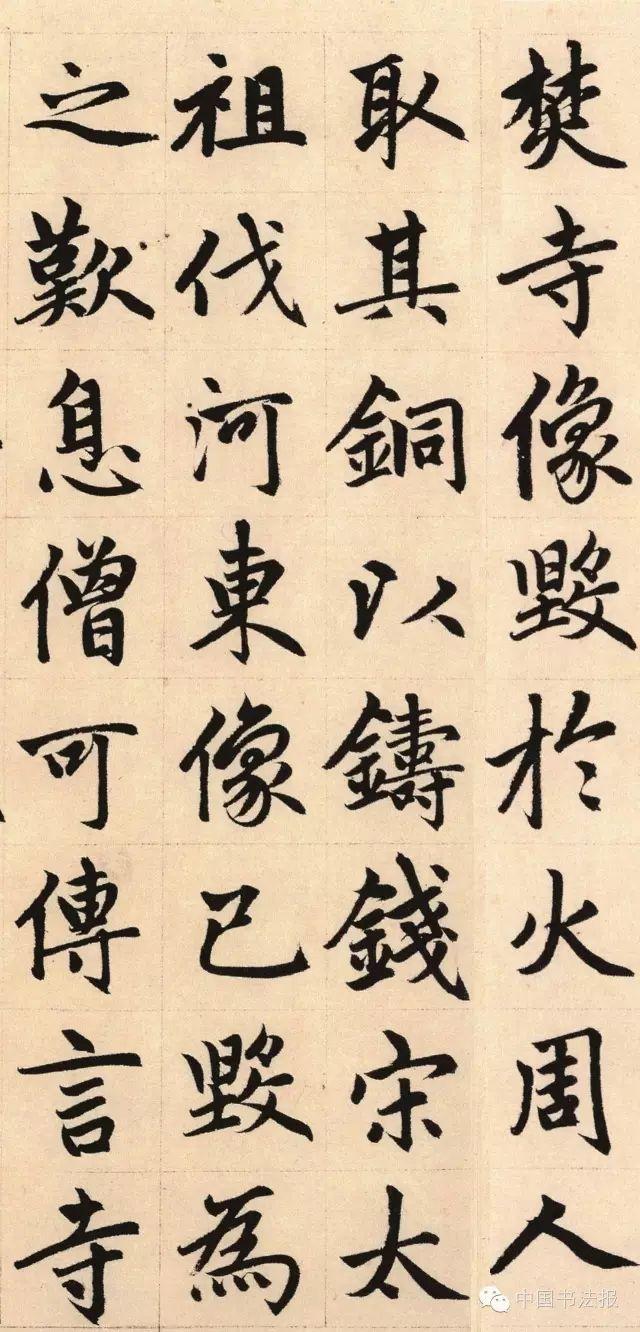 焚寺像毀於火周人
取其銅以鑄錢宋太
祖伐河東像已毀為
之歎息僧可傳言寺
中国书法报